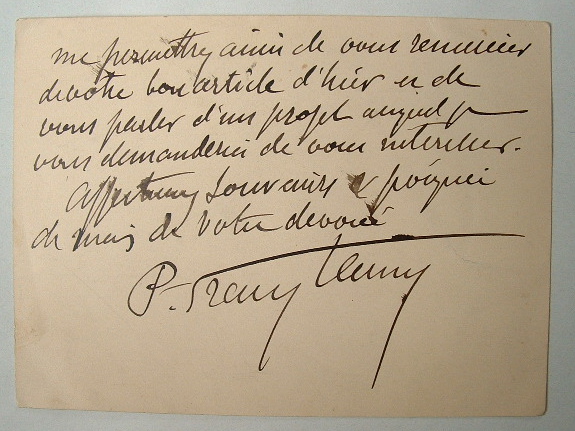 me permettrez ainsi de vous remercier
de votre bon article d'hier et de
vous parler d'un projet auquel je
vous demanderai de vous intéresser.
Affectueux souvenirs & poignée
de main de votre dévoué
P. Franz